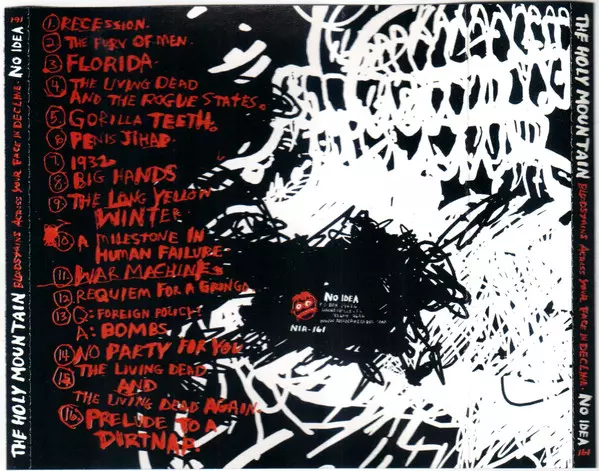 161
THE HOLY MOUNTAIN BLOODSTAINS ACROSS YOUR FACE IN DECLINE. NO IDEA
1. RECESSION.
2. THE FURY OF MEN.
3. FLORIDA.
4. THE LIVING DEAD
AND THE ROGUE STATES.
5. GORILLA TEETH.
6. PENIS JIHAD.
7. 1932
8. BIG HANDS
9. THE LONG YELLOW
WINTER.
10. A MILESTONE IN
HUMAN FAILURE.
11. WAR MACHINES
12. REQUIEM FOR A GRINGO
13. Q: FOREIGN POLICY?
A: BOMBS.
14. NO PARTY FOR YOU.
15. THE LIVING DEAD.
AND
THE LIVING DEAD AGAIN.
16. PRELUDE TO A
DIRTNAP.
NO IDEA
NIR-161
THE HOLY MOUNTAIN BLOODSTAINS ACROSS YOUR FACE IN DECLINE. NO IDEA 161